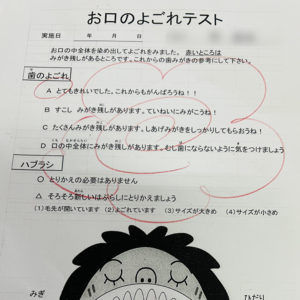 お口のよごれテスト
実施日　　年　　月　　日
お口の中全体を染め出してよごれをみました。赤いところは
みがき残しがあるところです。これからの歯みがきの参考にして下さい。
歯のよごれ
A とてもきれいでした。これからもがんばろうね！！
B すこし みがき残しがあります。ていねいにみがこうね！
C たくさんみがき残しがあります。しあげみがきをしっかりしてもらおうね！
D 口の中全体にみがき残しがあります。むし歯にならないように気をつけましょう
ハブラシ
○ とりかえの必要はありません
△ そろそろ新しいはぶらしにとりかえましょう
（1）毛先が開いています （2）よごれています （3）サイズが大きめ （4）サイズが小さめ
みぎ
ひだり